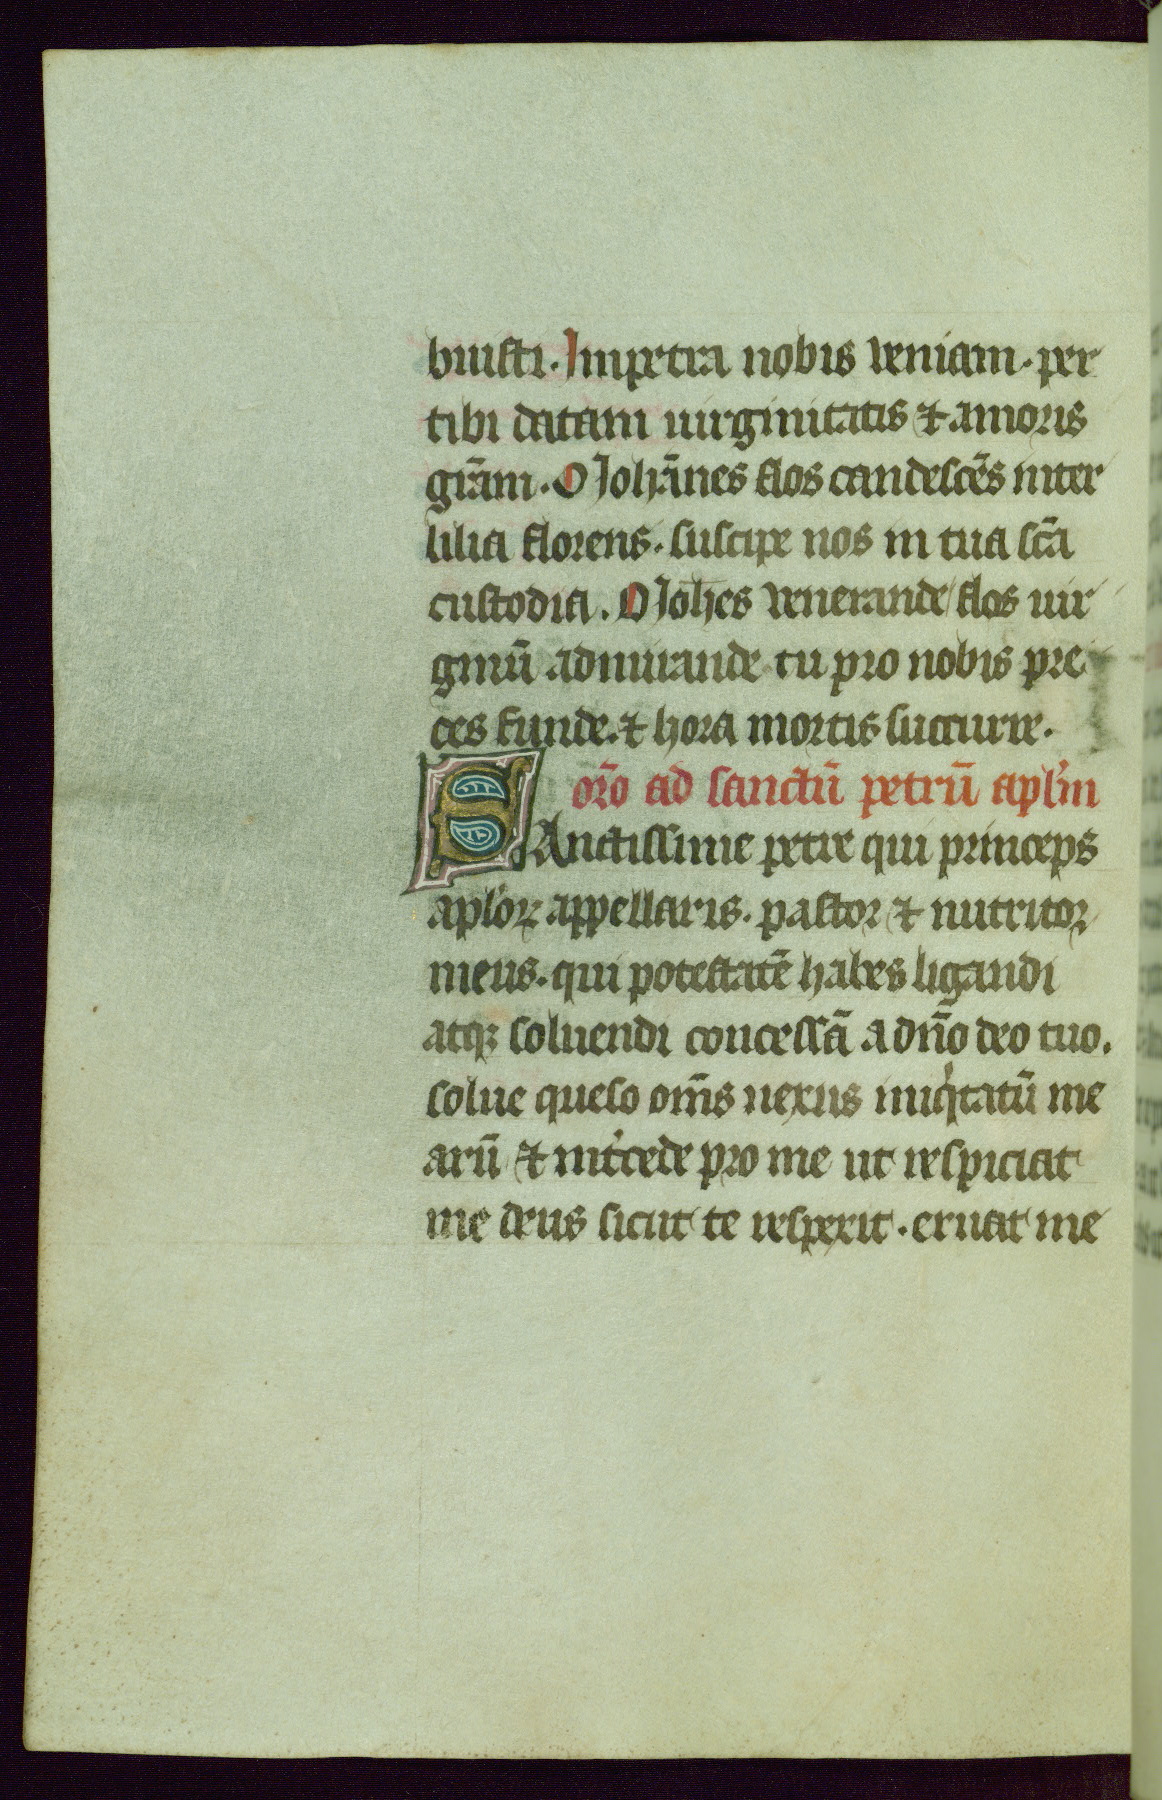 buisti. Impetra nobis veniam. per
tibi datam uirginitatis & amoris
gr̄am. O Joha̅nes flos candesce̅s inter
lilia florens. suscipe nos in tua sc̄a
custodia. O Joh̅es venerande flos uir
ginu̅ admirande tu pro nobis pre
ces funde. & hora mortis succurre.
or̅o ad sanctu̅ petru̅ apl'm
SAnctissime petre qui princeps
apl'oꝝ appellaris. pastor & nutritor
meus. qui potestate̅ habes ligandi
atqꝫ soluendi concessa̅ a dn̅o deo tuo.
solue queso om̅s nexus iniqͥtatu̅ me
aru̅ & int'cede pro me ut respiciat
me deus sicut te respexit. eruat me